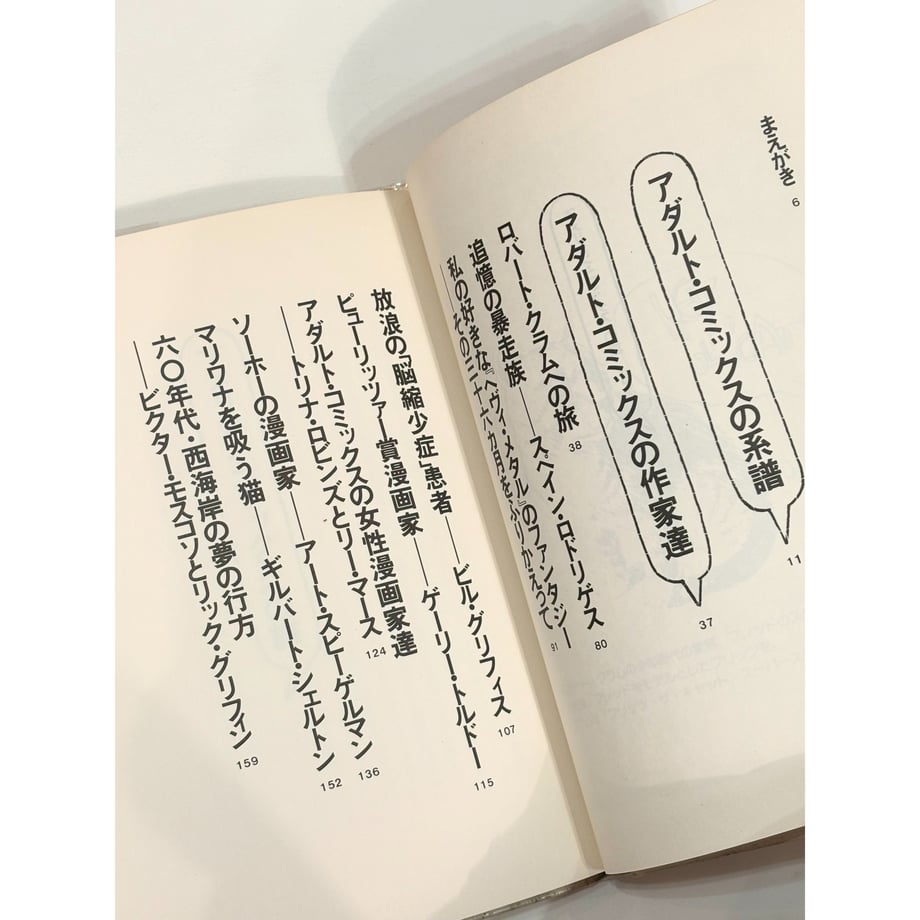 まえがき 6
アダルト・コミックスの系譜 11
アダルト・コミックスの作家達 37
ロバート・クラムへの旅 38
追憶の暴走族――スペイン・ロドリゲス 80
私の好きな『ヘヴィ・メタル』のファンタジー
――その三十六カ月をふりかえって 91
放浪の「脳縮少症」患者――ビル・グリフィス 107
ピューリッツァー賞漫画家――ゲーリー・トルドー 115
アダルト・コミックスの女性漫画家達
――トリナ・ロビンズとリー・マース 124
ソーホーの漫画家――アート・スピーゲルマン 136
マリワナを吸う猫――ギルバート・シェルトン 152
六〇年代・西海岸の夢の行方
――ビクター・モスコソとリック・グリフィン 159